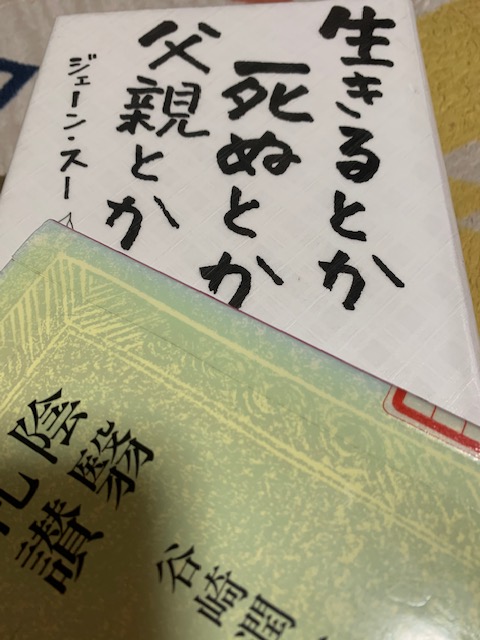 生きるとか
死ぬとか
父親とか
ジェーン・スー
陰翳
礼讃
谷崎潤